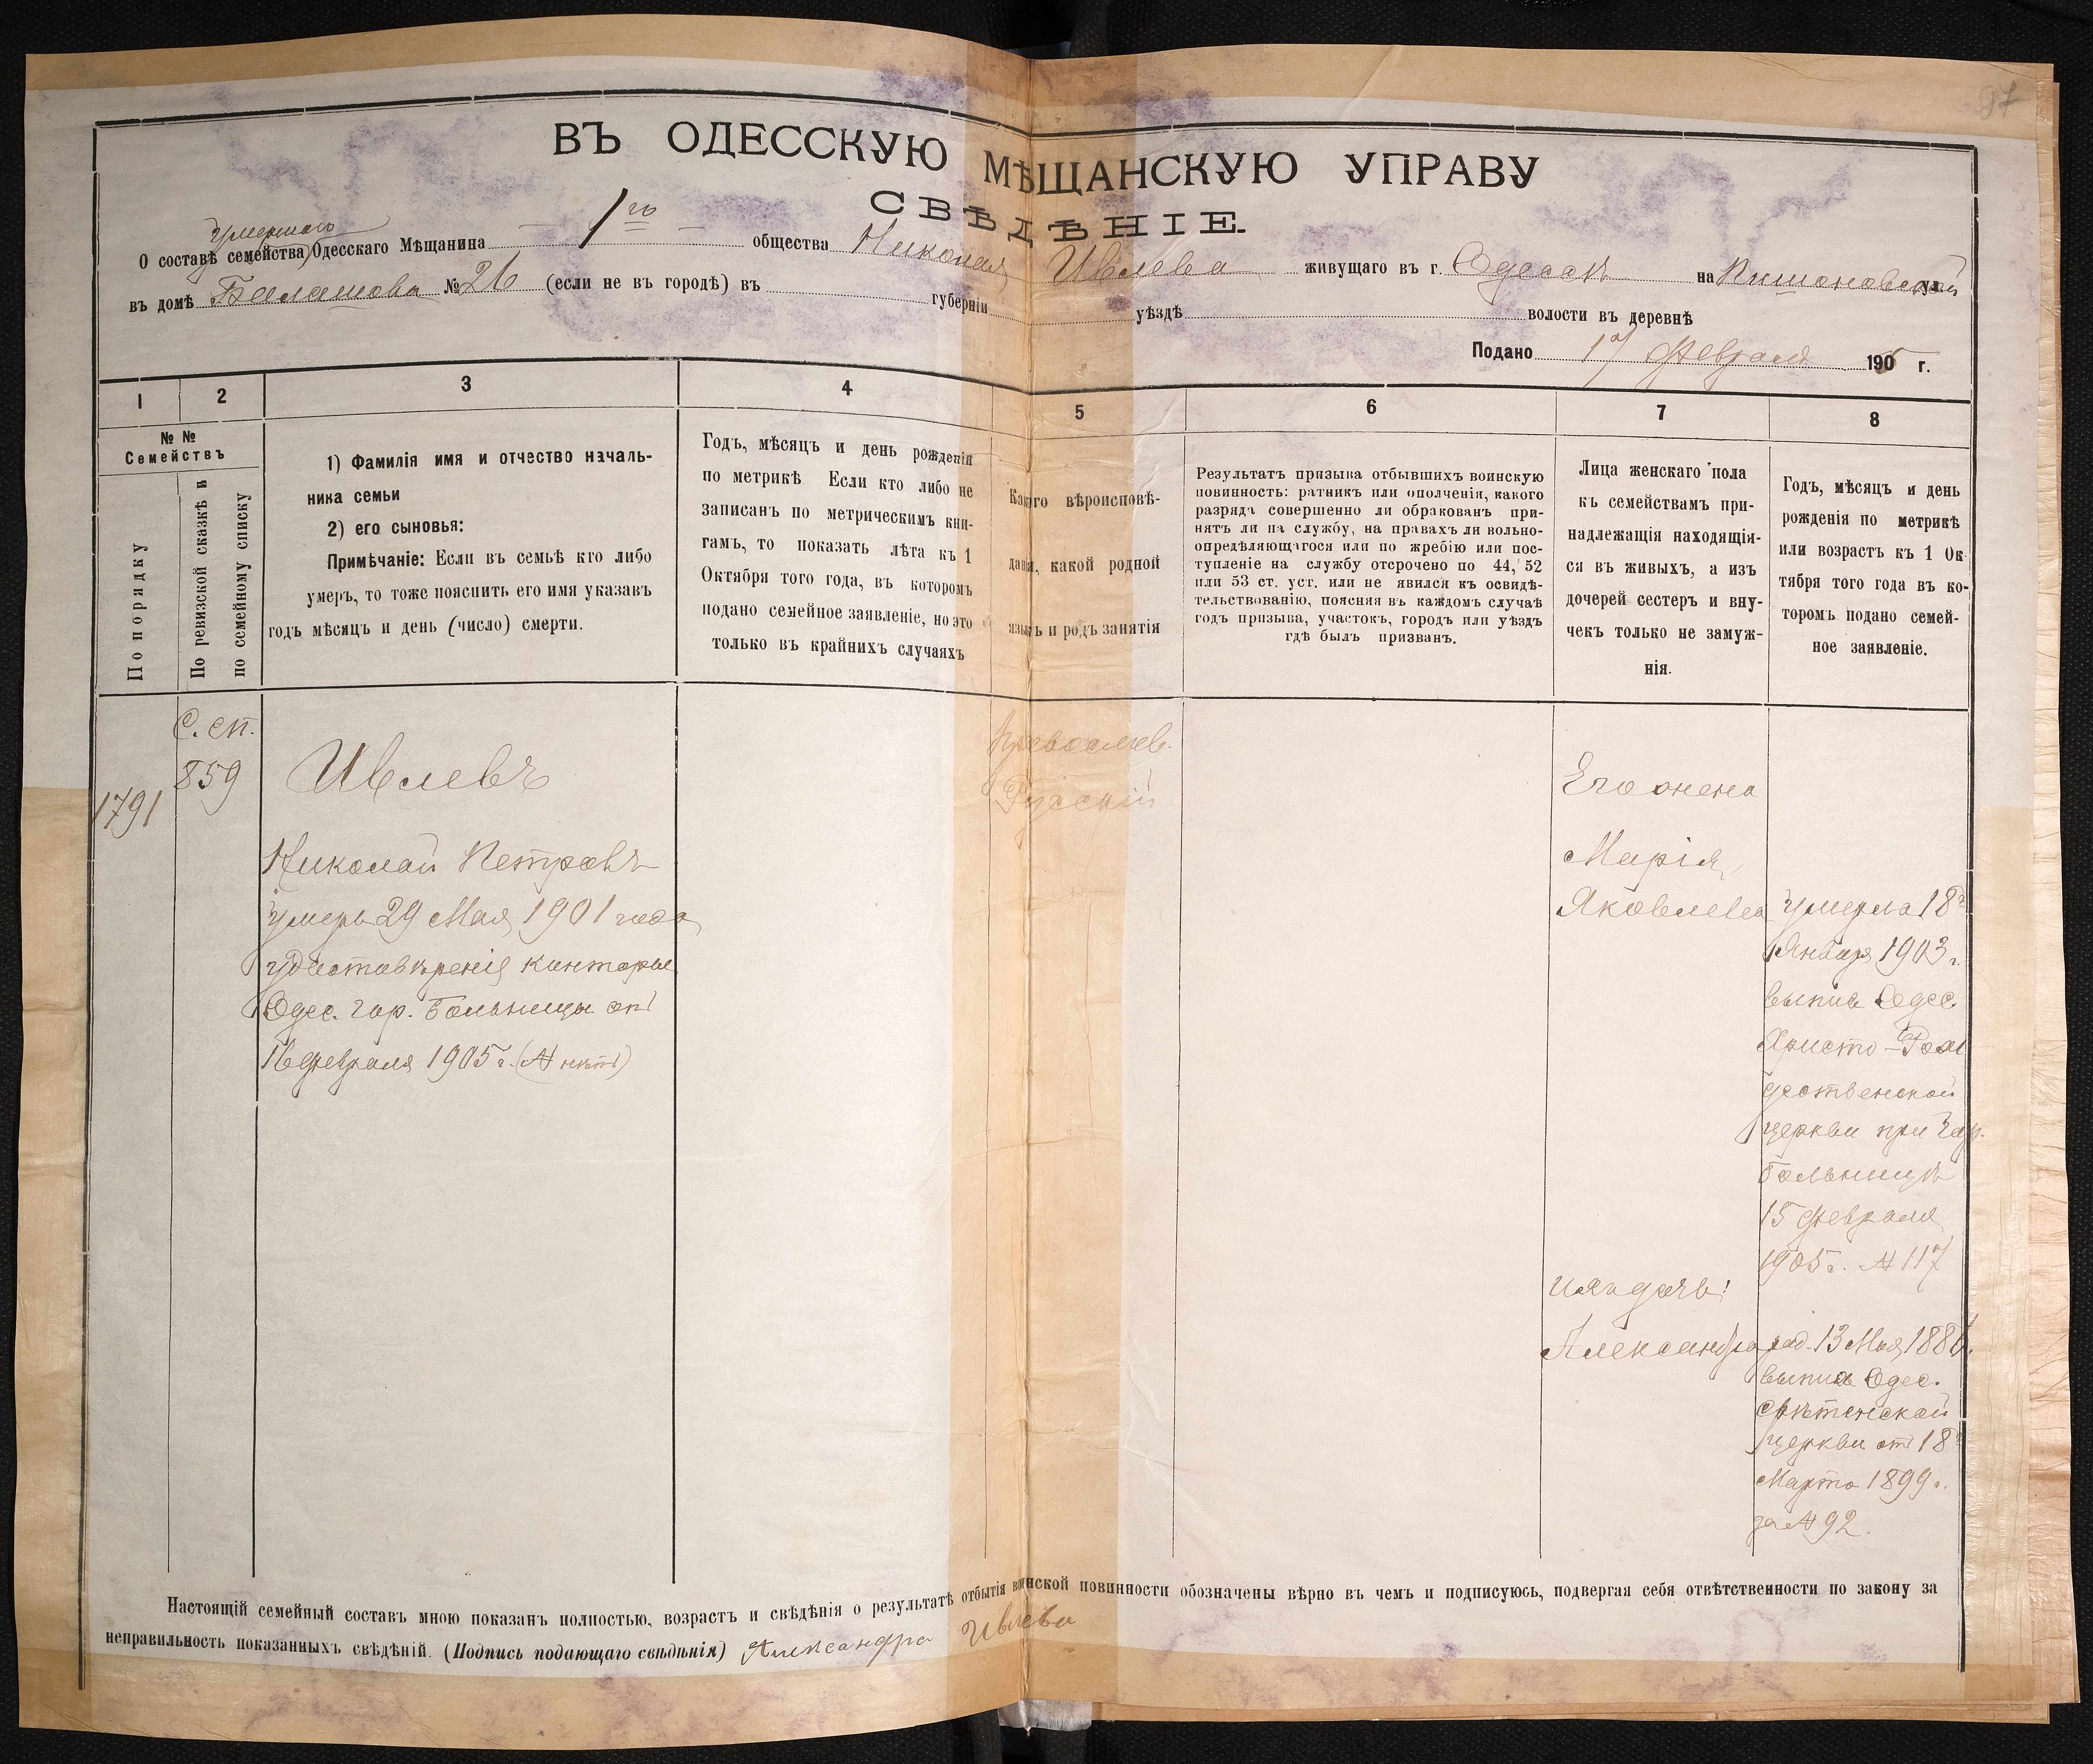 97
ВЪ ОДЕССКУЮ МѢЩАНСКУЮ УПРАВУ
СВѢДѢНІЕ.
умершаго
О составѣ семейства Одесскаго Мѣщанина 1го общества Николая Ивлева живущаго въ г. Одессѣ на ул.
въ домѣ Балашова № 26 (если не въ городѣ) въ губерніи уѣздѣ волости въ деревнѣ
Подано 17 Февраля 1905 г.
1 2 3 4 5 6 7 8
№ №
Семействъ
По порядку
По ревизской сказкѣ и
по семейному списку
1) Фамилія имя и отчество началь-
ника семьи
2) его сыновья:
Примѣчаніе: Если въ семьѣ кто либо
умеръ, то тоже пояснить его имя указавъ
годъ мѣсяцъ и день (число) смерти.
Годъ, мѣсяцъ и день рожденія
по метрикѣ Если кто либо не
записанъ по метрическимъ кни-
гамъ, то показать лѣта къ 1
Октября того года, въ которомъ
подано семейное заявленіе, но это
только въ крайнихъ случаяхъ
Какого вѣроисповѣ-
данія, какой родной
языкъ и родъ занятія
Результатъ призыва отбывшихъ воинскую
повинность: ратникъ или ополченія, какого
разряда совершенно ли обракованъ при-
нятъ ли на службу, на правахъ ли вольно-
опредѣляющагося или по жребію или пос-
тупленіе на службу отсрочено по 44, 52
или 53 ст. уст. или не явился къ освидѣ-
тельствованію, поясняя въ каждомъ случаѣ
годъ призыва, участокъ, городъ или уѣздъ
гдѣ былъ призванъ.
Лица женскаго пола
къ семействамъ при-
надлежащія находящі-
ся въ живыхъ, а изъ
дочерей сестеръ и вну-
чекъ только не замуж-
нія.
Годъ, мѣсяцъ и день
рожденія по метрикѣ
или возрастъ къ 1 Ок-
тября того года въ ко-
торомъ подано семей-
ное заявленіе.
1791
С. сп.
859
Ивлевъ
Николай Петровъ
умеръ 29 Мая 1901 года
удостовѣреніе конторы
Одес. гор. Больницы отъ
16 февраля 1905 г. (№ нѣтъ)
Православ.
Русскій
Его жена
Марія
Яковлева
умерла 18го
Января 1903 г.
выпись Одес.
Христо-Рож
дественской
церкви при Гор.
Больницѣ
15 февраля
1905 г. № 117
ихъ дочь:
Александра
род. 13 Мая 1886.
выпись Одес.
Срѣтенской
церкви отъ 18го
Марта 1899 г.
за № 92.
Настоящій семейный составъ мною показанъ полностью, возрастъ и свѣдѣнія о результатѣ отбытія воинской повинности обозначены вѣрно въ чемъ и подписуюсь, подвергая себя отвѣтственности по закону за
неправильность показанныхъ свѣдѣній. (Подпись подающаго свѣдѣнія) Александра Ивлева